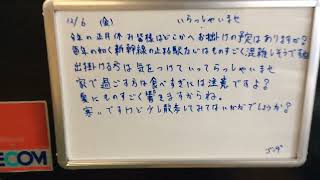 12/6 (金) いらっしゃいませ
今年の正月休み皆様はどこかへお掛けの予定はありますか?
毎年の如く新幹線の止まる駅たいはものすごく混雑しそうですね
出掛ける方は気をつけていってらっしゃいませ
家で過ごす方は食べすぎには注意ですよ?
夏にものすごく響きますからね。
寒いですけど少し散歩してみてはいかがでしょうか?
ECOM